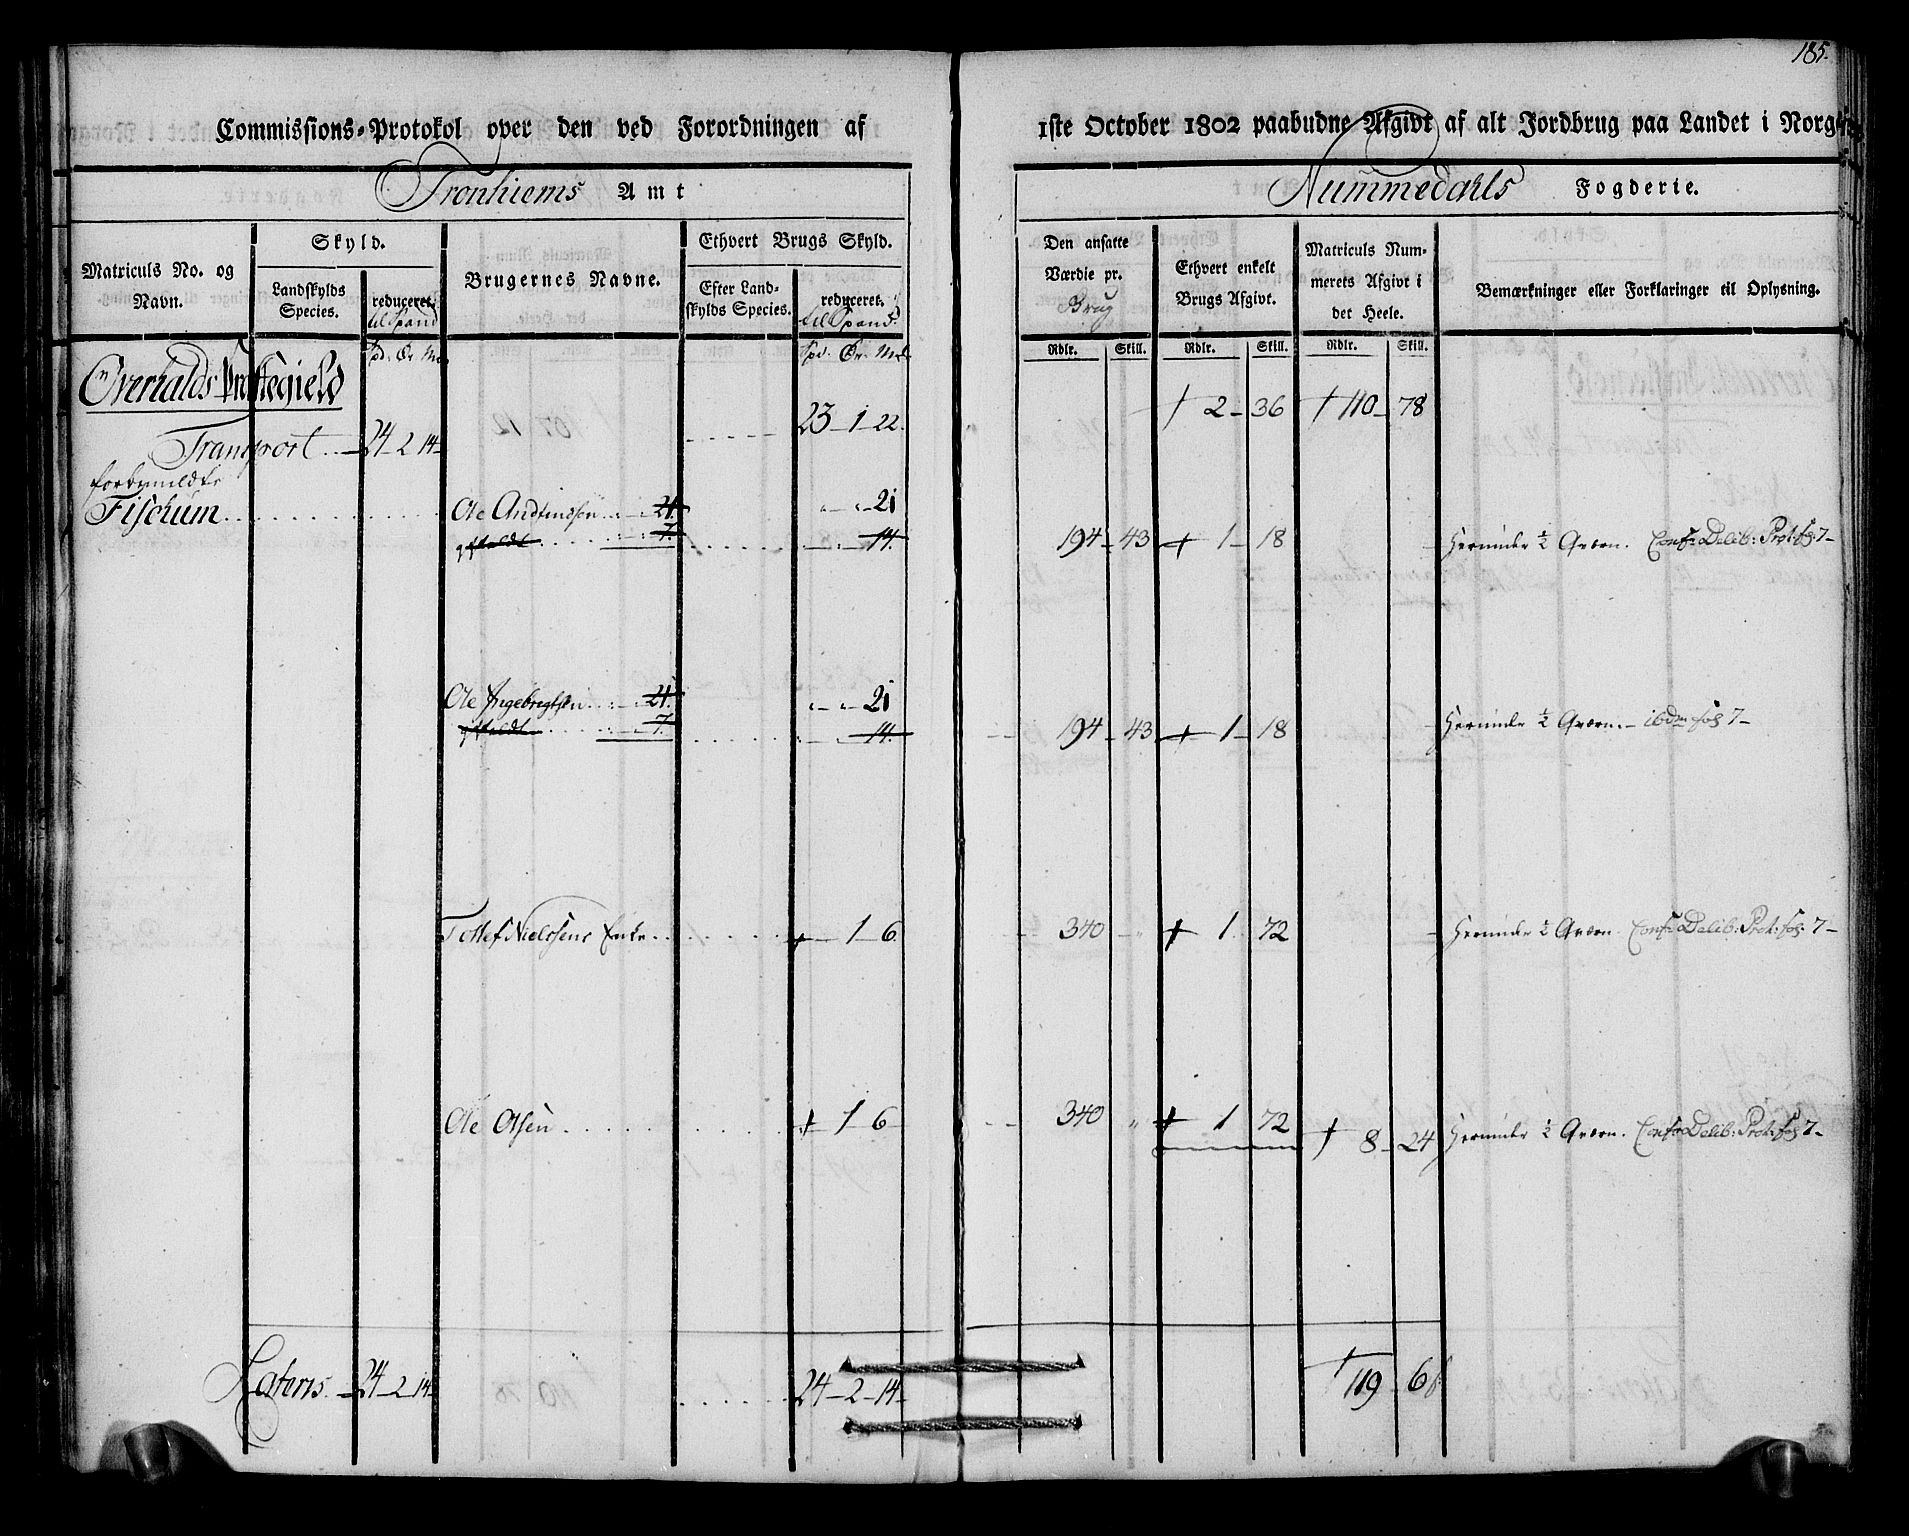 185.
Commissions-Protokol over den ved Forordningen af 1ste October 1802 paabudne Afgivt af alt Jordbrug paa Landet i Norge
Tronhiems Amt
Nummedahls Fogderie.
Matriculs No. og Navn.
Skyld.
Landskylds Species.
reduceret til Spand
Brugernes Navne.
Ethvert Brugs Skyld.
Efter Landskylds Species.
reduceret til Spand.
Den ansatte Værdie pr. Brug
Ethvert enkelt Brugs Afgivt.
Matriculs Nummerets Afgivt i det Heele.
Bemærkninger eller Forklaringer til Oplysning.
Spd. Ör. Ml. Spd. Ör. Ml. Rdlr. Skill. Rdlr. Skill. Rdlr. Skill.
Overhalds Præstegield
Transport 24-2-14 23-1-22 † 2-36 † 110-78
forbemeldte
Fischum Ole Andfindsen 21. " - " - 21
7. 14. 194-43 + 1-18 Herunder ½ Qværn. Conf: Delib: Prot: fol: 7-
Ole Ingebrigtsen 21. " - " - 21
7. 14. 194-43 + 1-18 Herunder ½ Qværn. - ibdm fol 7-
Tollef Nielssens Enke + 1-6 340 " + 1 72 Herunder ½ Qværn. Conf: Delib: Prot: fol: 7-
Ole Olsen + 1-6 340 " + 1 72 † 8-24 Herunder ½ Qværn. Conf: Delib: Prot: fol 7-
Lateris 24-2-14 24-2-14 † 119-6